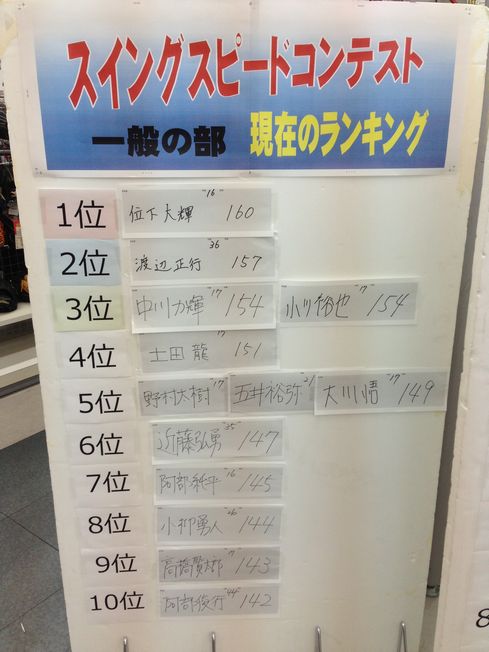 スイングスピードコンテスト
一般の部 現在のランキング
1位 位下大輝 "16" 160
2位 渡辺正行 "36" 157
3位 中川力輝 "17" 154 小川裕也 "17" 154
4位 土田龍 17 151
5位 野村大樹 "17" 五井裕弥 "21" 大川悟 "17" 149
6位 近藤弘勇 "35" 147
7位 阿部純平 "16" 145
8位 小柳勇人 "26" 144
9位 高橋賢太郎 143
10位 阿部俊行 "44" 142
8